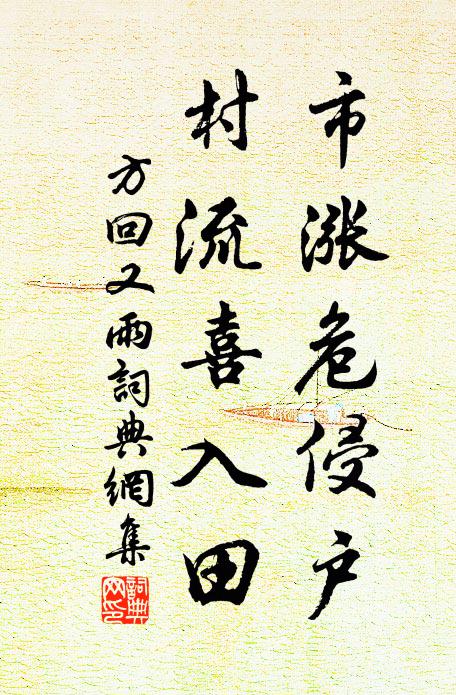 市涨危侵户
村流喜入田
方回又雨詞典網集
詞典網印